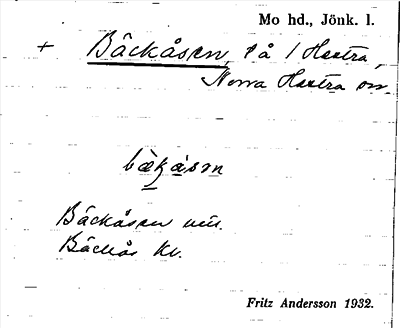 Mo hd., Jönk. l.
+ Bäckåsen, på 1 Hestra,
Norra Hestra sn.
bækåsn
Bäckåsen
Bäckås Kv.
Fritz Andersson 1932.